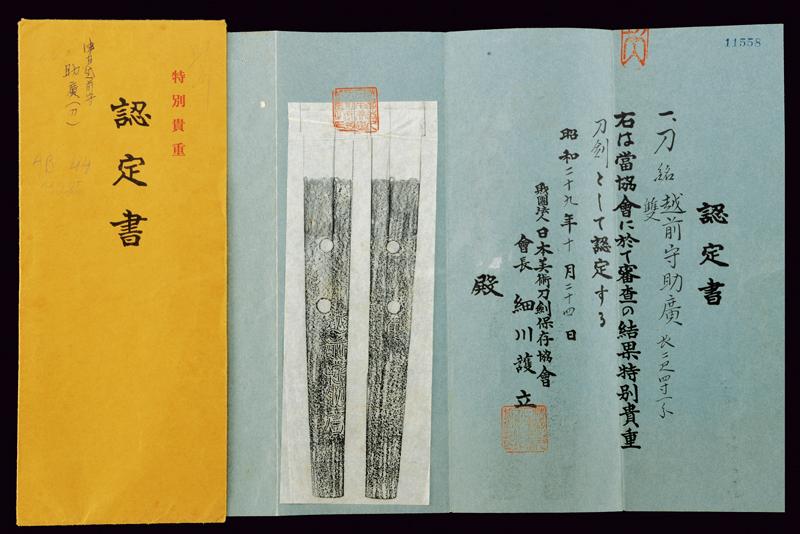 特別貴重
認定書
津田越前守
助廣（刀）
AB 44
11558
認定書
一、刀 銘 越前守助廣 長二尺四寸一分
雙
右は當協會に於て審査の結果特別貴重
刀劍として認定する
昭和二十九年十月二十四日
財團法人日本美術刀劍保存協會
會長 細川護立
殿